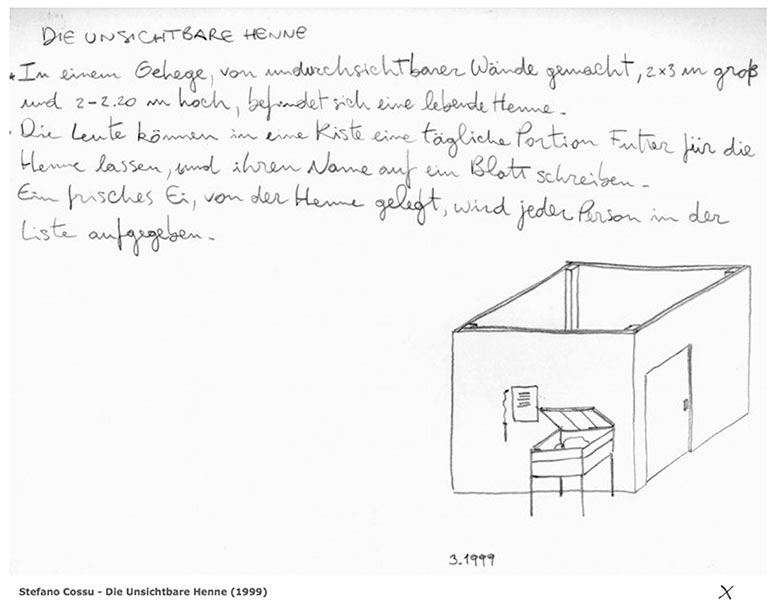 DIE UNSICHTBARE HENNE
• In einem Gehege, von undurchsichtbarer Wände gemacht, 2x3 m groß
und 2-2.20 m hoch, befindet sich eine lebende Henne.
• Die Leute können in eine Kiste eine tägliche Portion Futter für die
Henne lassen, und ihren Name auf ein Blatt schreiben.
Ein frisches Ei, von der Henne gelegt, wird jeder Person in der
Liste aufgegeben.
3.1999
Stefano Cossu - Die Unsichtbare Henne (1999)
X